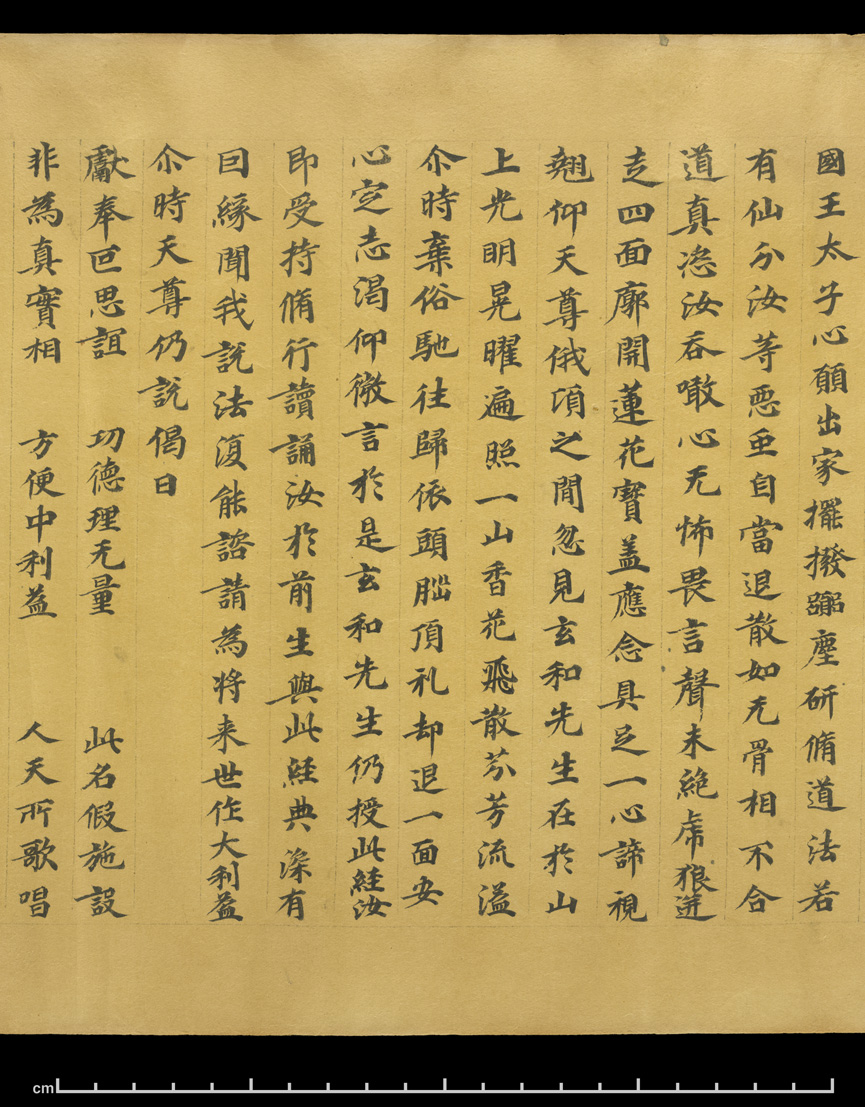 國王太子心願出家擺撥囂塵研脩道法若
有仙分汝等惡虫自當退散如无骨相不合
道真恣汝吞噉心无怖畏言聲未絶虎狼迸
走四面廓開蓮花寳盖應念具足一心諦視
翹仰天尊俄頃之間忽見玄和先生在於山
上光明晃曜遍照一山香花飛散芬芳流溢
尒時棄俗馳往歸依頭腦頂礼却退一面安
心定志渴仰微言於是玄和先生仍授此經汝
即受持脩行讀誦汝於前生與此經典深有
因緣聞我說法復能諮請為将来世作大利益
尒時天尊仍說偈曰
獻奉叵思誼 功德理无量 此名假施設
非為真實相 方便中利益 人天所歌唱